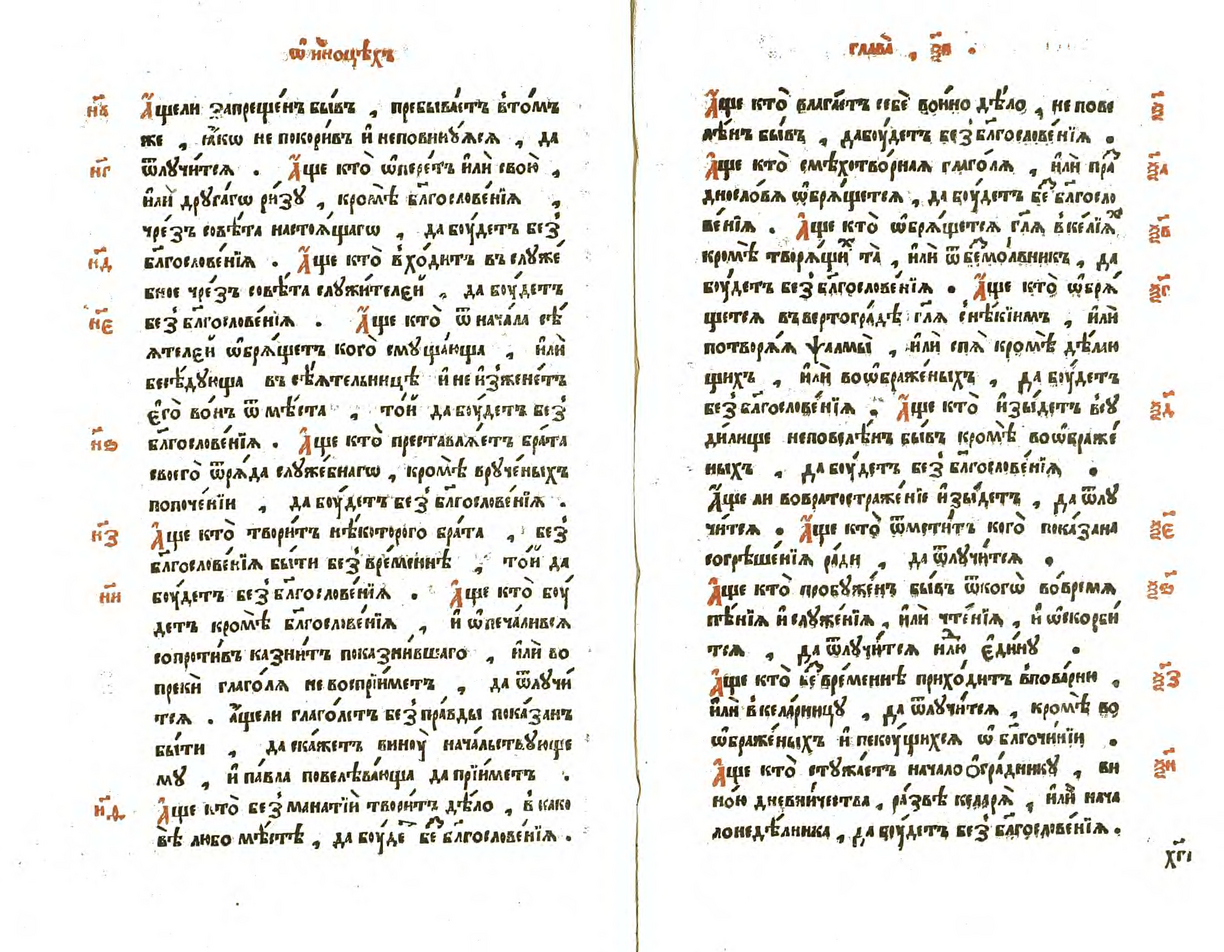 Ѡ҆ и҆́ноцѣхъ
н҃в А҆́щели запреще́нъ бы́въ , пребыва́етъ в҆то́мъ
же , ꙗ҆́кѡ не покори́въ и҆ неповину́ѧсѧ , да
н҃г ѿлꙋчи́тсѧ . А҆́ще кто̀ ѡ҆пере́тъ и҆лѝ свою̀ ,
и҆лѝ дрꙋга́гѡ ри́зꙋ , кромѣ̀ бл҃гослове́нїѧ ,
чрезъ совѣ́та настоѧ́щагѡ , да бꙋ́детъ без̾
н҃д бл҃гослове́нїѧ . А҆́ще кто̀ в҆хо́дитъ въ слꙋже́
бное чрезъ совѣ́та слꙋжи́телєй , да бꙋ́детъ
н҃є без̾ бл҃гослове́нїѧ . А҆́ще кто̀ ѿ нача́ла сѣ́
ѧтелєй ѡ҆брѧ́щетъ кого̀ смꙋща́юща , и҆лѝ
бесѣ́дꙋюща въ сѣ́ѧтельницѣ и҆ не и҆зжене́тъ
є҆го̀ во́нъ ѿ мѣ́ста , то́й да бꙋ́детъ без̾
н҃ѕ бл҃гослове́нїѧ . А҆́ще кто̀ преставлѧ́етъ бра́та
своего̀ ѿрѧ́да слꙋже́бнагѡ , кромѣ̀ врꙋче́ныхъ
попоче́нїи , да бꙋ́детъ без̾ бл҃гослове́нїѧ .
н҃з А҆́ще кто̀ твори́тъ нѣ́которого бра́та , без̾
бл҃гослове́нїѧ бы́ти без̾вре́меннѣ , то́й да
н҃и бꙋ́детъ без̾ бл҃гослове́нїѧ . А҆́ще кто̀ бꙋ́
детъ кромѣ̀ бл҃гослове́нїѧ , и҆ ѡ҆печа́ливсѧ
сопроти́въ казни́тъ показни́вшаго , и҆лѝ во
прекѝ глаго́лѧ не воспрїи́метъ , да ѿлꙋчи́
тсѧ . А҆́щели глаго́летъ без̾ пра́вды пока́занъ
бы́ти , да ска́жетъ винꙋ̀ нача́льствꙋюще
мꙋ , и҆ па́вла повелѣва́юща да прїи́метъ .
н҃ѳ А҆́ще кто̀ без̾ мана́тїй твори́тъ дѣ́ло , в҆ како
вѣ́ любо мѣ́стѣ , да бꙋ́де бе бл҃гослове́нїѧ .
глава̀ , ѯ҃в .
ѯ҃ А҆́ще кто̀ влага́етъ себѐ во и҆но дѣ́ло , не пове
лѣ́нъ бы́въ , да бꙋ́детъ без̾ бл҃гослове́нїѧ .
ѯ҃а А҆́ще кто̀ смѣхотво́рнаѧ глаго́лѧ , и҆лѝ пра́
днословѧ ѡ҆брѧ́щетсѧ , да бꙋ́детъ бе бл҃госло
ѯ҃в ве́нїѧ . А҆́ще кто̀ ѡ҆брѧ́щетсѧ гл҃ѧ в҆ке́лїѧ
кромѣ̀ творѧ́щи та̀ , и҆лѝ ѿ безмо́лвникъ , да
ѯ҃г бꙋ́детъ без̾ бл҃гослове́нїѧ . А҆́ще кто̀ ѡ҆брѧ́
щетсѧ въ вертогра́дѣ гл҃ѧ с҆нѣ́кїимъ , и҆лѝ
потворѧ́ѧ ѱалмы̀ , и҆лѝ спѧ̀ кромѣ̀ дѣ́лаю
щихъ , и҆лѝ воѡ҆браже́ныхъ , да бꙋ́детъ
ѯ҃д без̾ бл҃гослове́нїѧ . А҆́ще кто̀ и҆зы́детъ в҆сꙋ
ди́лище неповелѣ́нъ бы́въ кромѣ̀ воѡ҆браже́
ныхъ , да бꙋ́детъ без̾ бл҃гослове́нїѧ .
А҆́ще ли вовратостраже́нїе и҆зы́детъ , да ѿлꙋ
ѯ҃є чи́тсѧ . А҆́ще кто̀ ѿмети́тъ кого̀ пока́зана
согрѣше́нїѧ ра́ди , да ѿлꙋчи́тсѧ .
ѯ҃ѕ А҆́ще кто̀ пробꙋже́нъ бы́въ ѿкогѡ̀ во вре́мѧ
пѣ́нїѧ и҆ слꙋже́нїѧ , и҆лѝ чте́нїѧ , и҆ ѡ҆скорби́
тсѧ , да ѿлꙋчи́тсѧ нлю є҆ди́нꙋ .
ѯ҃з А҆́ще кто̀ бе вре́меннѣ прихо́дитъ в҆пова́рню ,
и҆лѝ в҆кела́рницꙋ , да ѿлꙋчи́тсѧ , кромѣ̀ во
ѡ҆браже́ныхъ и҆ пекꙋ́щихсѧ ѡ҆ бл҃гочи́нїи .
ѯ҃и А҆́ще кто̀ стꙋжа́етъ начало ѻ҆гра́дникꙋ , ви
но́ю дневни́чества , ра́звѣ келарѧ̀ , и҆лѝ нача
лонедѣ́лника , да бꙋ́детъ без̾ бл҃гослове́нїѧ .
х҃гі